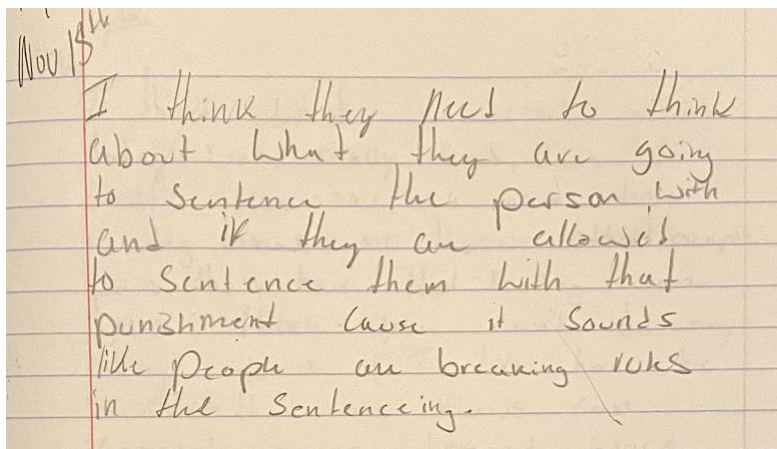 Nov 18th
I think they need to think
about what they are going
to sentence the person with
and if they are allowed
to sentence them with that
punshment cause it sounds
like people are breaking rules
in the Sentenceing.